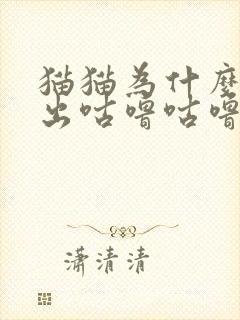 猫猫為什麼
出咕嚕咕嚕
瀟清清